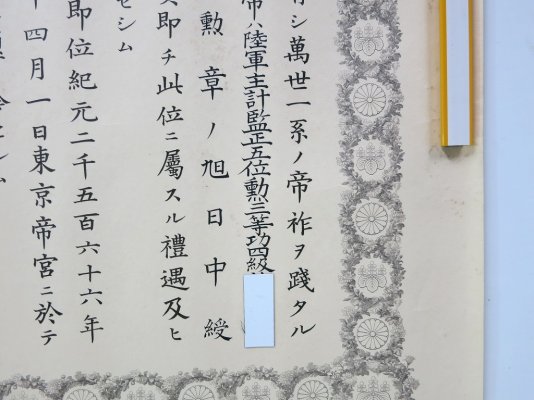 有シ萬世一系ノ帝祚ヲ踐タル
帝ハ陸軍主計監正五位勲三等功四級
勲章ノ旭日中綬
即チ此位ニ屬スル禮遇及ヒ
セシム
即位紀元二千五百六十六年
四月一日東京帝宮ニ於テ